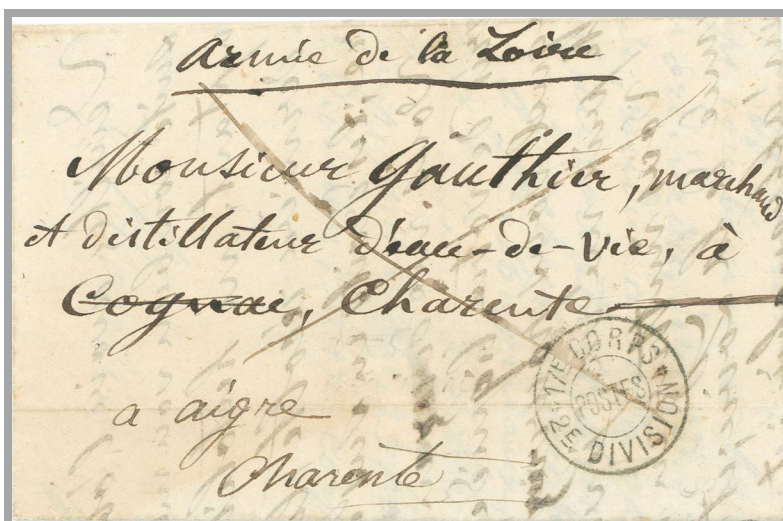 Armée de la Loire
Monsieur Gauthier, marchand
et distillateur d'eau-de-vie, à
Cognac, Charente
a aigre
Charente
17E CORPS
2E DIVISION
POSTES